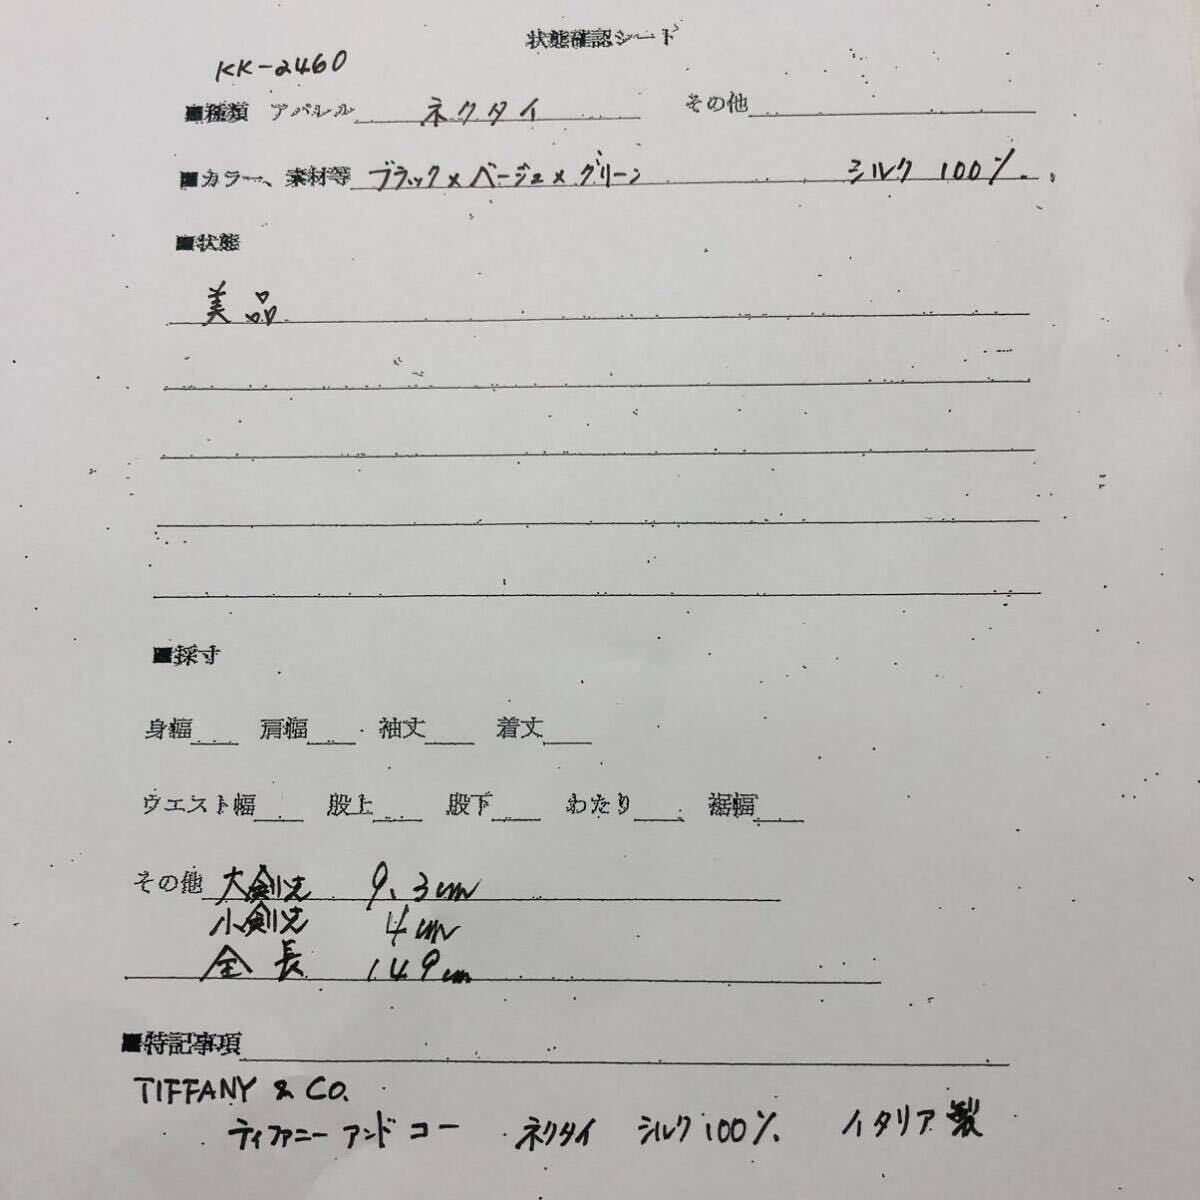 状態確認シート
KK-2460
■種類 アパレル ネクタイ その他
■カラー、素材等 ブラック×ベージュ×グリーン シルク 100%
■状態
美品
■採寸
身幅 肩幅 袖丈 着丈
ウエスト幅 股上 股下 わたり 裾幅
その他 大剣先 9.3cm
小剣先 4cm
全長 149cm
■特記事項
TIFFANY & CO.
ティファニー アンド コー ネクタイ シルク100% イタリア製